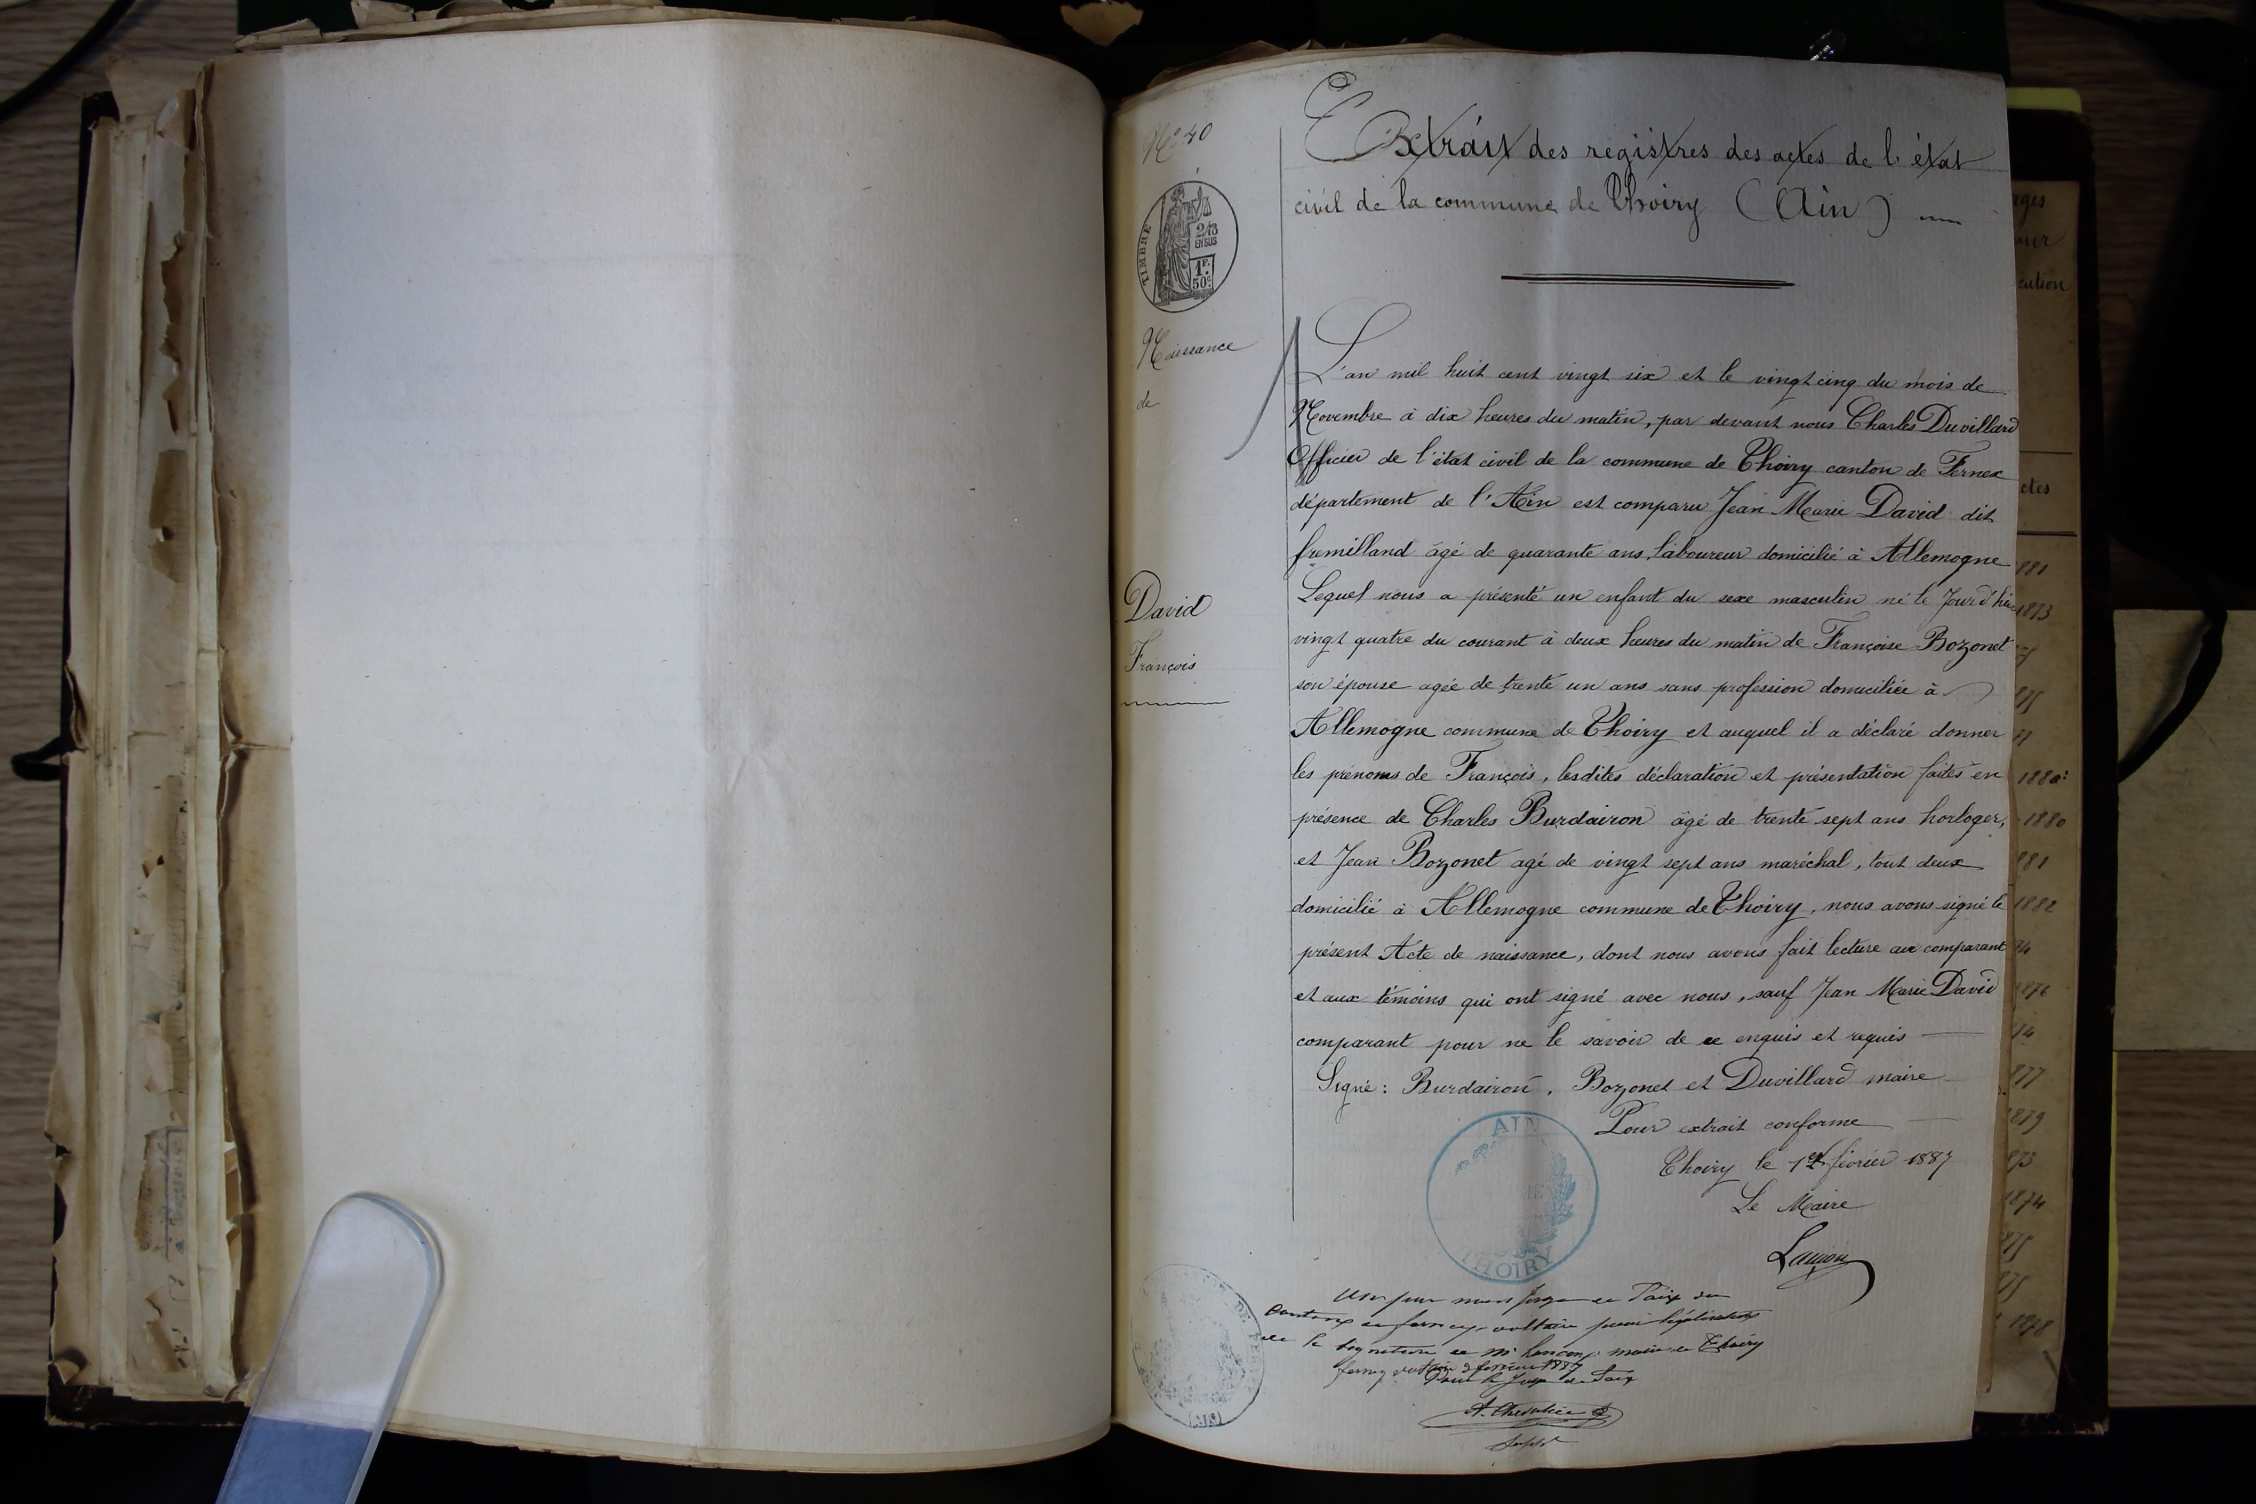 N° 40
TIMBRE
2/10
EN SUS
1F.
50c
Naissance
de
David
François
Extrait des registres des actes de l'état
civil de la commune de Thoiry (Ain)
L'an mil huit cent vingt six et le vingt cinq du mois de
Novembre à dix heures du matin, par devant nous Charles Duvillard
Officier de l'état civil de la commune de Thoiry canton de Fernex
département de l'Ain est comparu Jean Marie David dit
fremilland âgé de quarante ans, laboureur domicilié à Allemogne
Lequel nous a présenté un enfant du sexe masculin né le Jour d'hier
vingt quatre du courant à deux heures du matin de Françoise Bozonet
son épouse agée de trente un ans sans profession domiciliée à
Allemogne commune de Thoiry et auquel il a déclaré donner
les prénoms de François, lesdites déclaration et présentation faites en
présence de Charles Burdairon âgé de trente sept ans horloger,
et Jean Bozonet agé de vingt sept ans maréchal, tout deux
domicilié à Allemogne commune de Thoiry, nous avons signé le
présent Acte de naissance, dont nous avons fait lecture au comparant
et aux témoins qui ont signé avec nous, sauf Jean Marie David
comparant pour ne le savoir de ce enquis et requis
Signé : Burdairon, Bozonet et Duvillard maire
Pour extrait conforme
Thoiry le 1er février 1887
Le Maire
AIN
THOIRY
Vu par nous Juge de Paix du
Canton de ferney-voltaire pour légalisation
de la signature de Mr maire de Thoiry
ferney voltaire 1887
Pour le Juge de Paix
A. Chevalier
Suppt
(AIN)
1881
1873
1880
1880
1881
1882
1876
1877
1879
1873
1874
1878